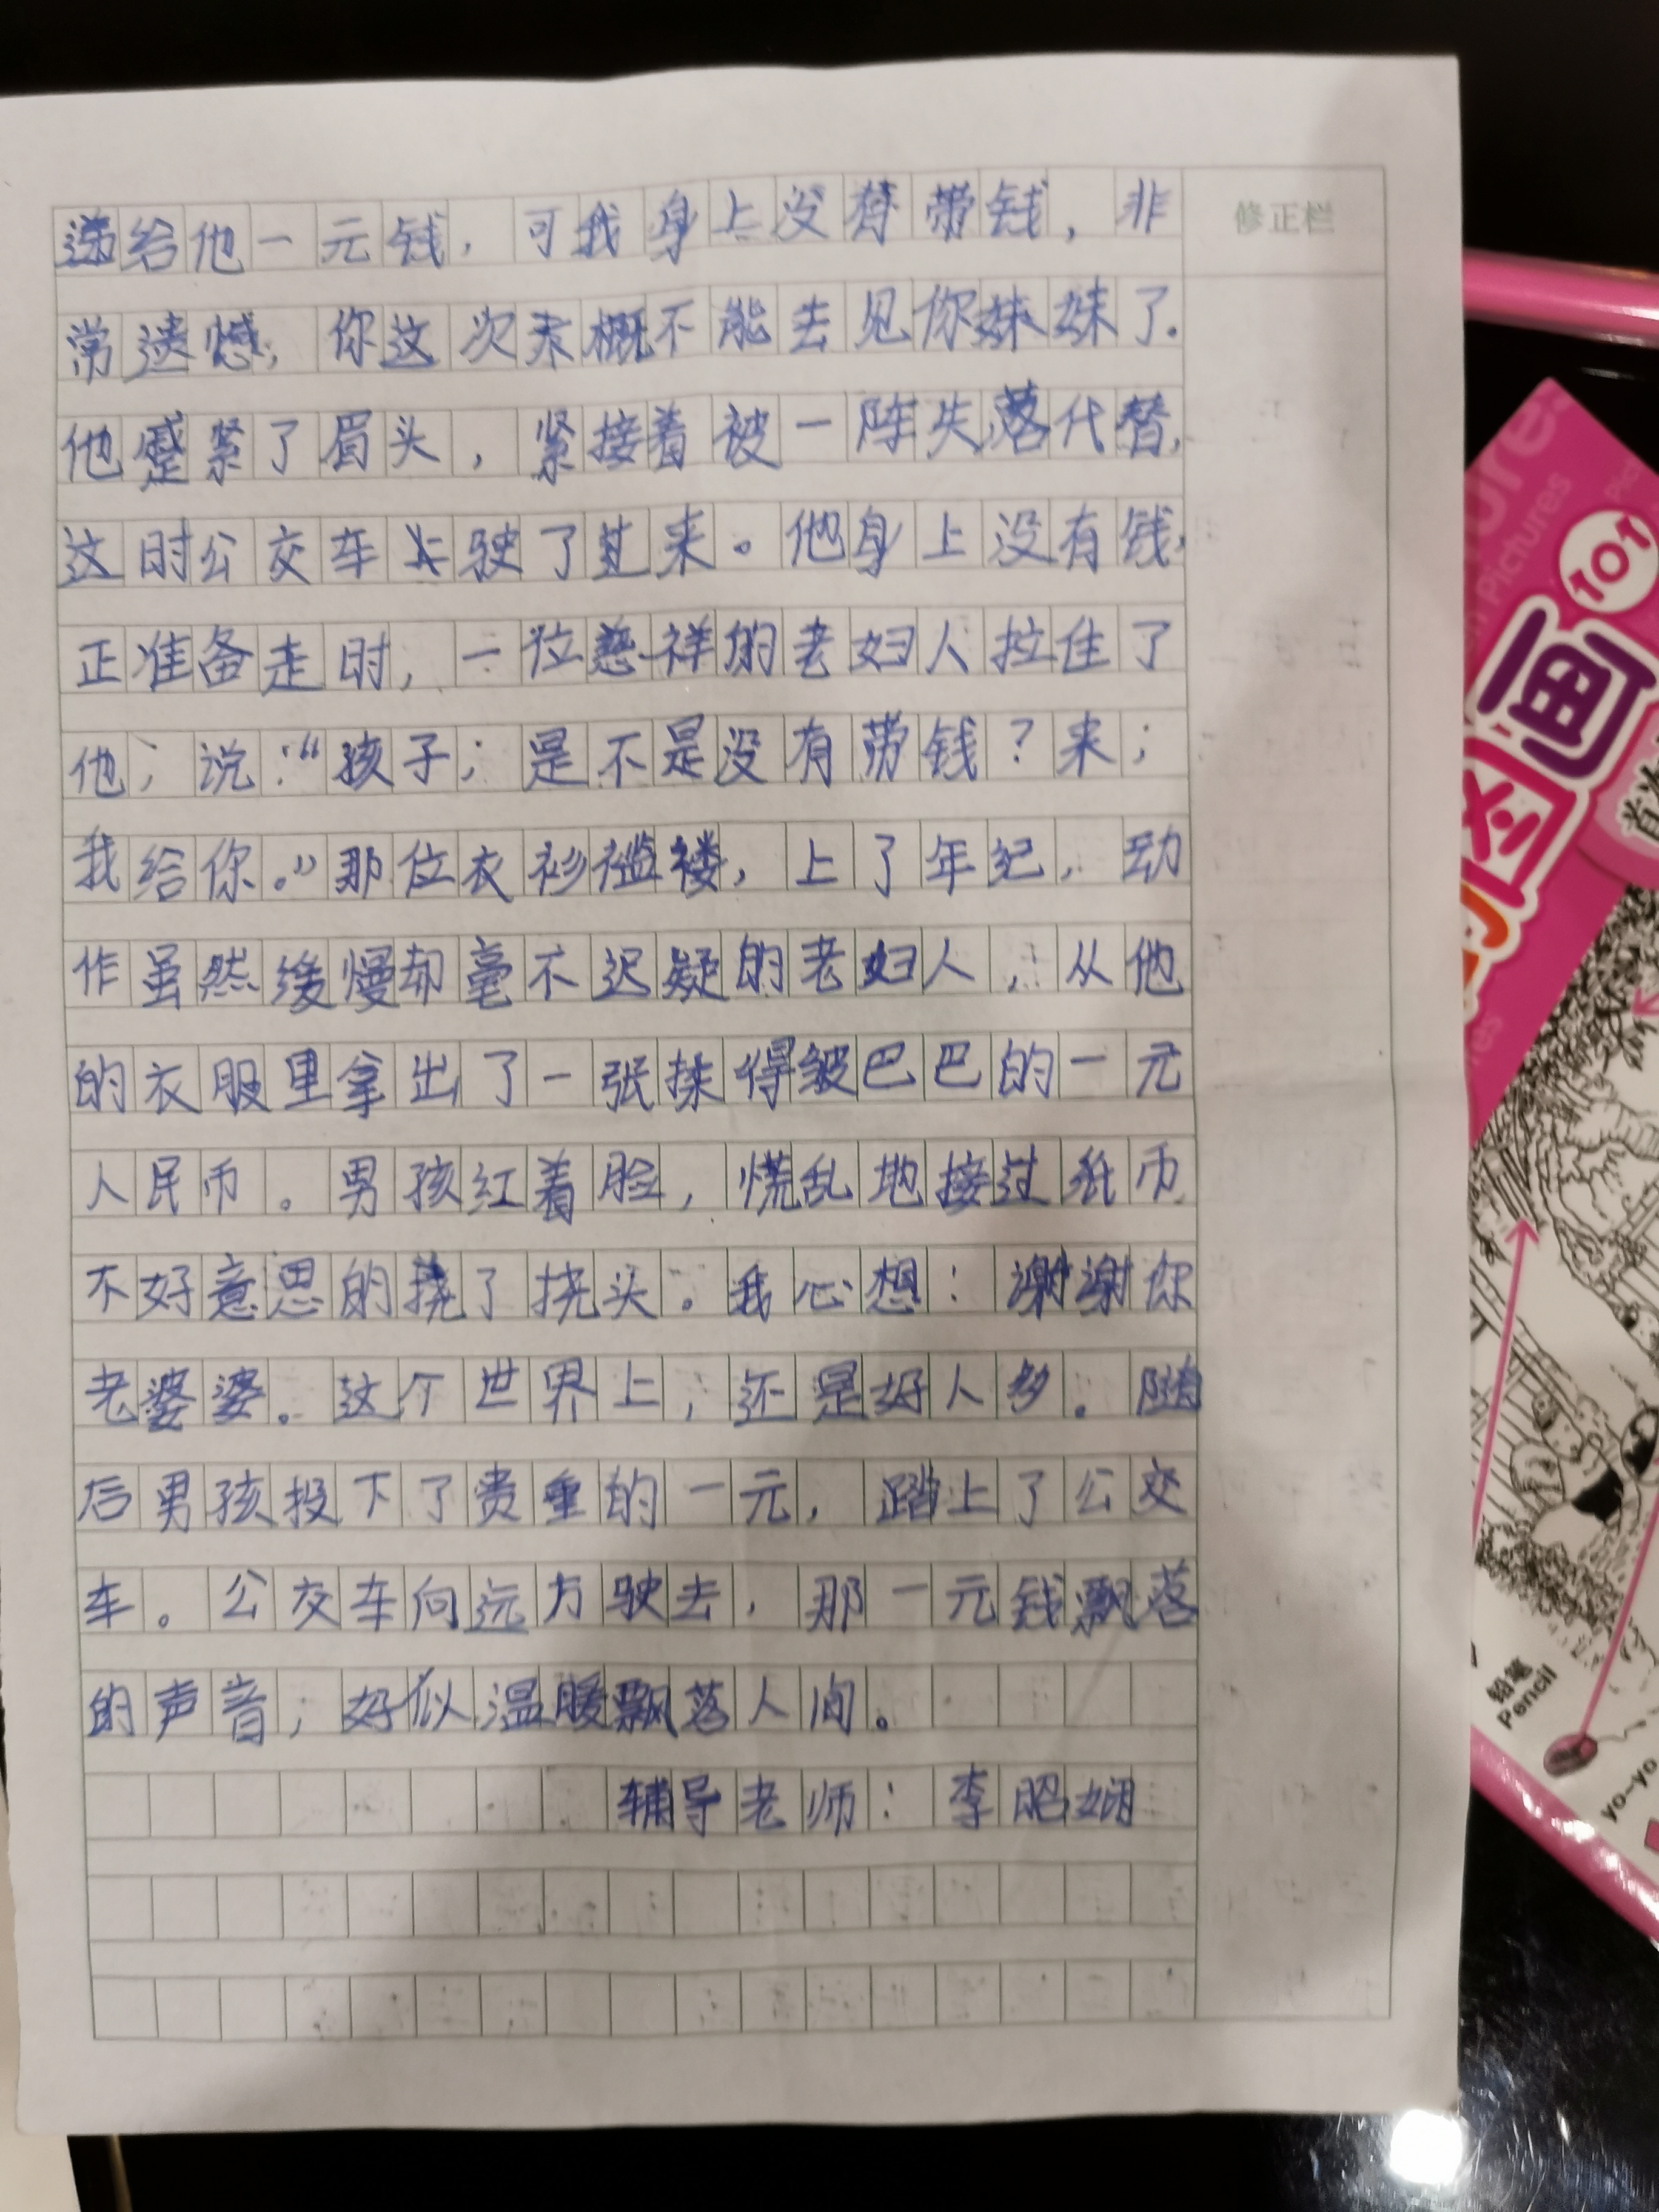 递给他一元钱，可我身上没有带钱，非
修正栏
常遗憾，你这次大概不能去见你妹妹了.
他蹙紧了眉头，紧接着被一阵失落代替,
这时公交车驶了过来。他身上没有钱,
正准备走时，一位慈祥的老妇人拉住了
他，说：“孩子，是不是没有带钱？来，
我给你。”那位衣衫褴褛，上了年纪，动
作虽然缓慢却毫不迟疑的老妇人，从他
的衣服里拿出了一张揉得皱巴巴的一元
人民币。男孩红着脸，慌乱地接过纸币,
不好意思的挠了挠头。我心想：谢谢你
老婆婆。这个世界上，还是好人多。随
后男孩投下了贵重的一元，踏上了公交
车。公交车向远方驶去，那一元钱飘落
的声音，好似温暖飘落人间。
辅导老师：李昭娴
101
Pictures
画
图
铅笔
Pencil
yo-yo